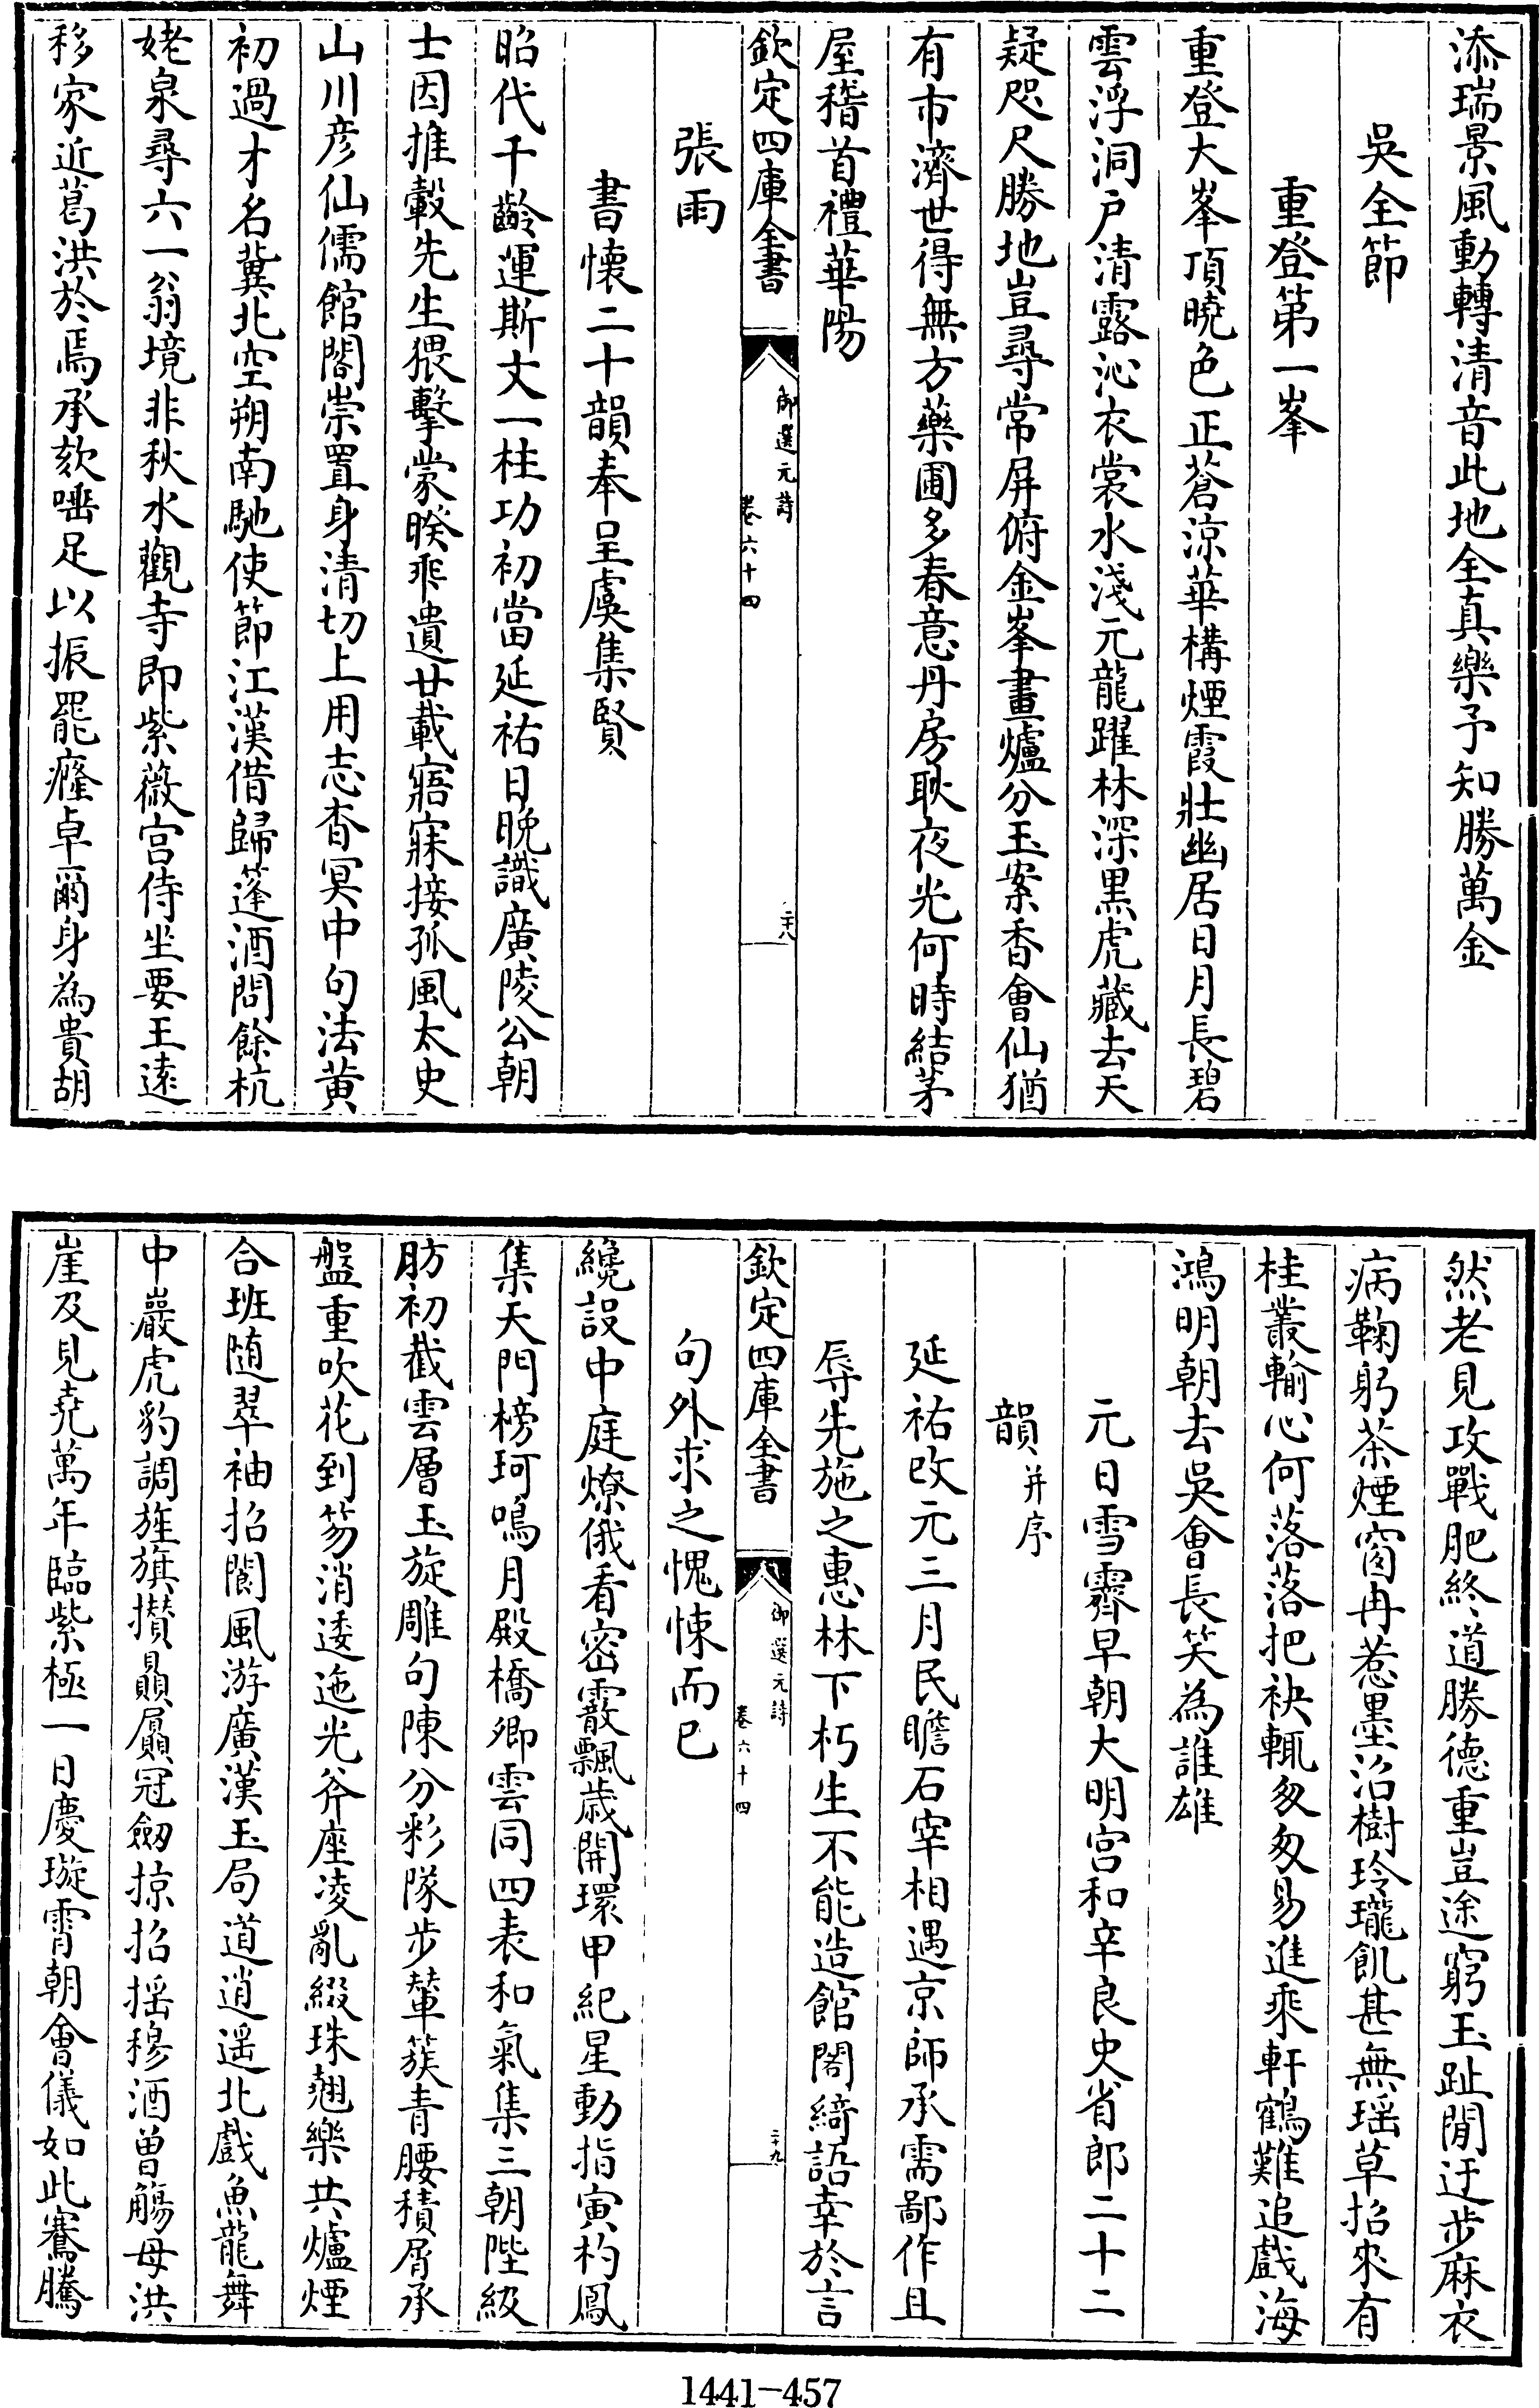 添瑞景風動轉清音此地全真樂予知勝萬金
吳全節
重登第一峯
重登大峯頂曉色正蒼涼華構煙霞壯幽居日月長碧
雲浮洞戶清露沁衣裳水淺元龍躍林深黑虎藏去天
疑咫尺勝地豈尋常屏俯金峯畫爐分玉案香會仙猶
有市濟世得無方藥圃多春意丹房耿夜光何時結茅
屋稽首禮華陽
欽定四庫全書
御選元詩
卷六十四
二十八
張雨
書懷二十韻奉呈虞集賢
昭代千齡運斯文一柱功初當延祐日晚識廣陵公朝
士因推轂先生猥擊蒙睽乖遺廿載寤寐接孤風太史
山川彥仙儒館閣崇置身清切上用志杳冥中句法黃
初過才名冀北空朔南馳使節江漢借歸篷酒問餘杭
姥泉尋六一翁境非秋水觀寺即紫薇宮侍坐要王遠
移家近葛洪於焉承欬唾足以振罷癃卓爾身為貴胡
然老見攻戰肥終道勝德重豈途窮玉趾閒迂步麻衣
病鞠躬茶煙窗冉惹墨沼樹玲瓏飢甚無瑤草招來有
桂叢輸心何落落把袂輒匆匆易進乘軒鶴難追戲海
鴻明朝去吳會長笑為誰雄
元日雪霽早朝大明宮和辛良史省郎二十二
韻并序
延祐改元三月民瞻石宰相遇京師承需鄙作且
辱先施之惠林下朽生不能造館閣綺語幸於言
句外求之愧悚而已
欽定四庫全書
御選元詩
卷六十四
二十九
纔設中庭燎俄看密霰飄歲開環甲紀星動指寅杓鳳
集天門榜珂鳴月殿橋卿雲同四表和氣集三朝陛級
肪初截雲層玉旋雕句陳分彩隊步輦簇青腰積屑承
盤重吹花到笏消逶迤光斧座凌亂綴珠翹樂共爐煙
合班随翠袖招閬風游廣漢玉局道逍遥北戲魚龍舞
中嚴虎豹調旌旗攢贔屭冠劒掠招揺穆酒曽觴母洪
崖及見堯萬年臨紫極一日慶璇霄朝會儀如此騫騰
1441-457